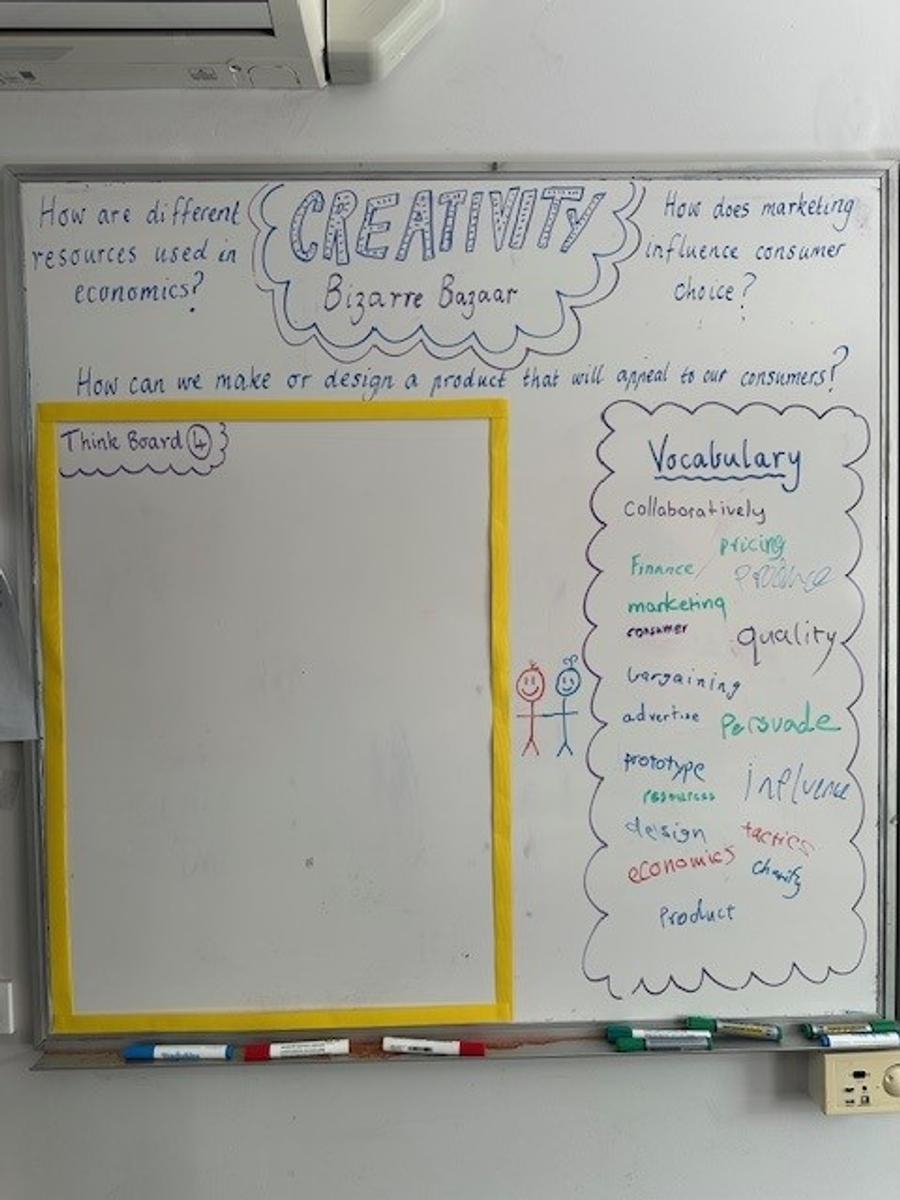 How are different
resources used in
economics?
CREATIVITY
Bizarre Bazaar
How does marketing
influence consumer
choice?
How can we make or design a product that will appeal to our consumers?
Think Board 4
Vocabulary
collaboratively
pricing
Finance
produce
marketing
consumer
quality
bargaining
advertise
Persuade
prototype
resources
influence
design
tactics
economics
charity
Product